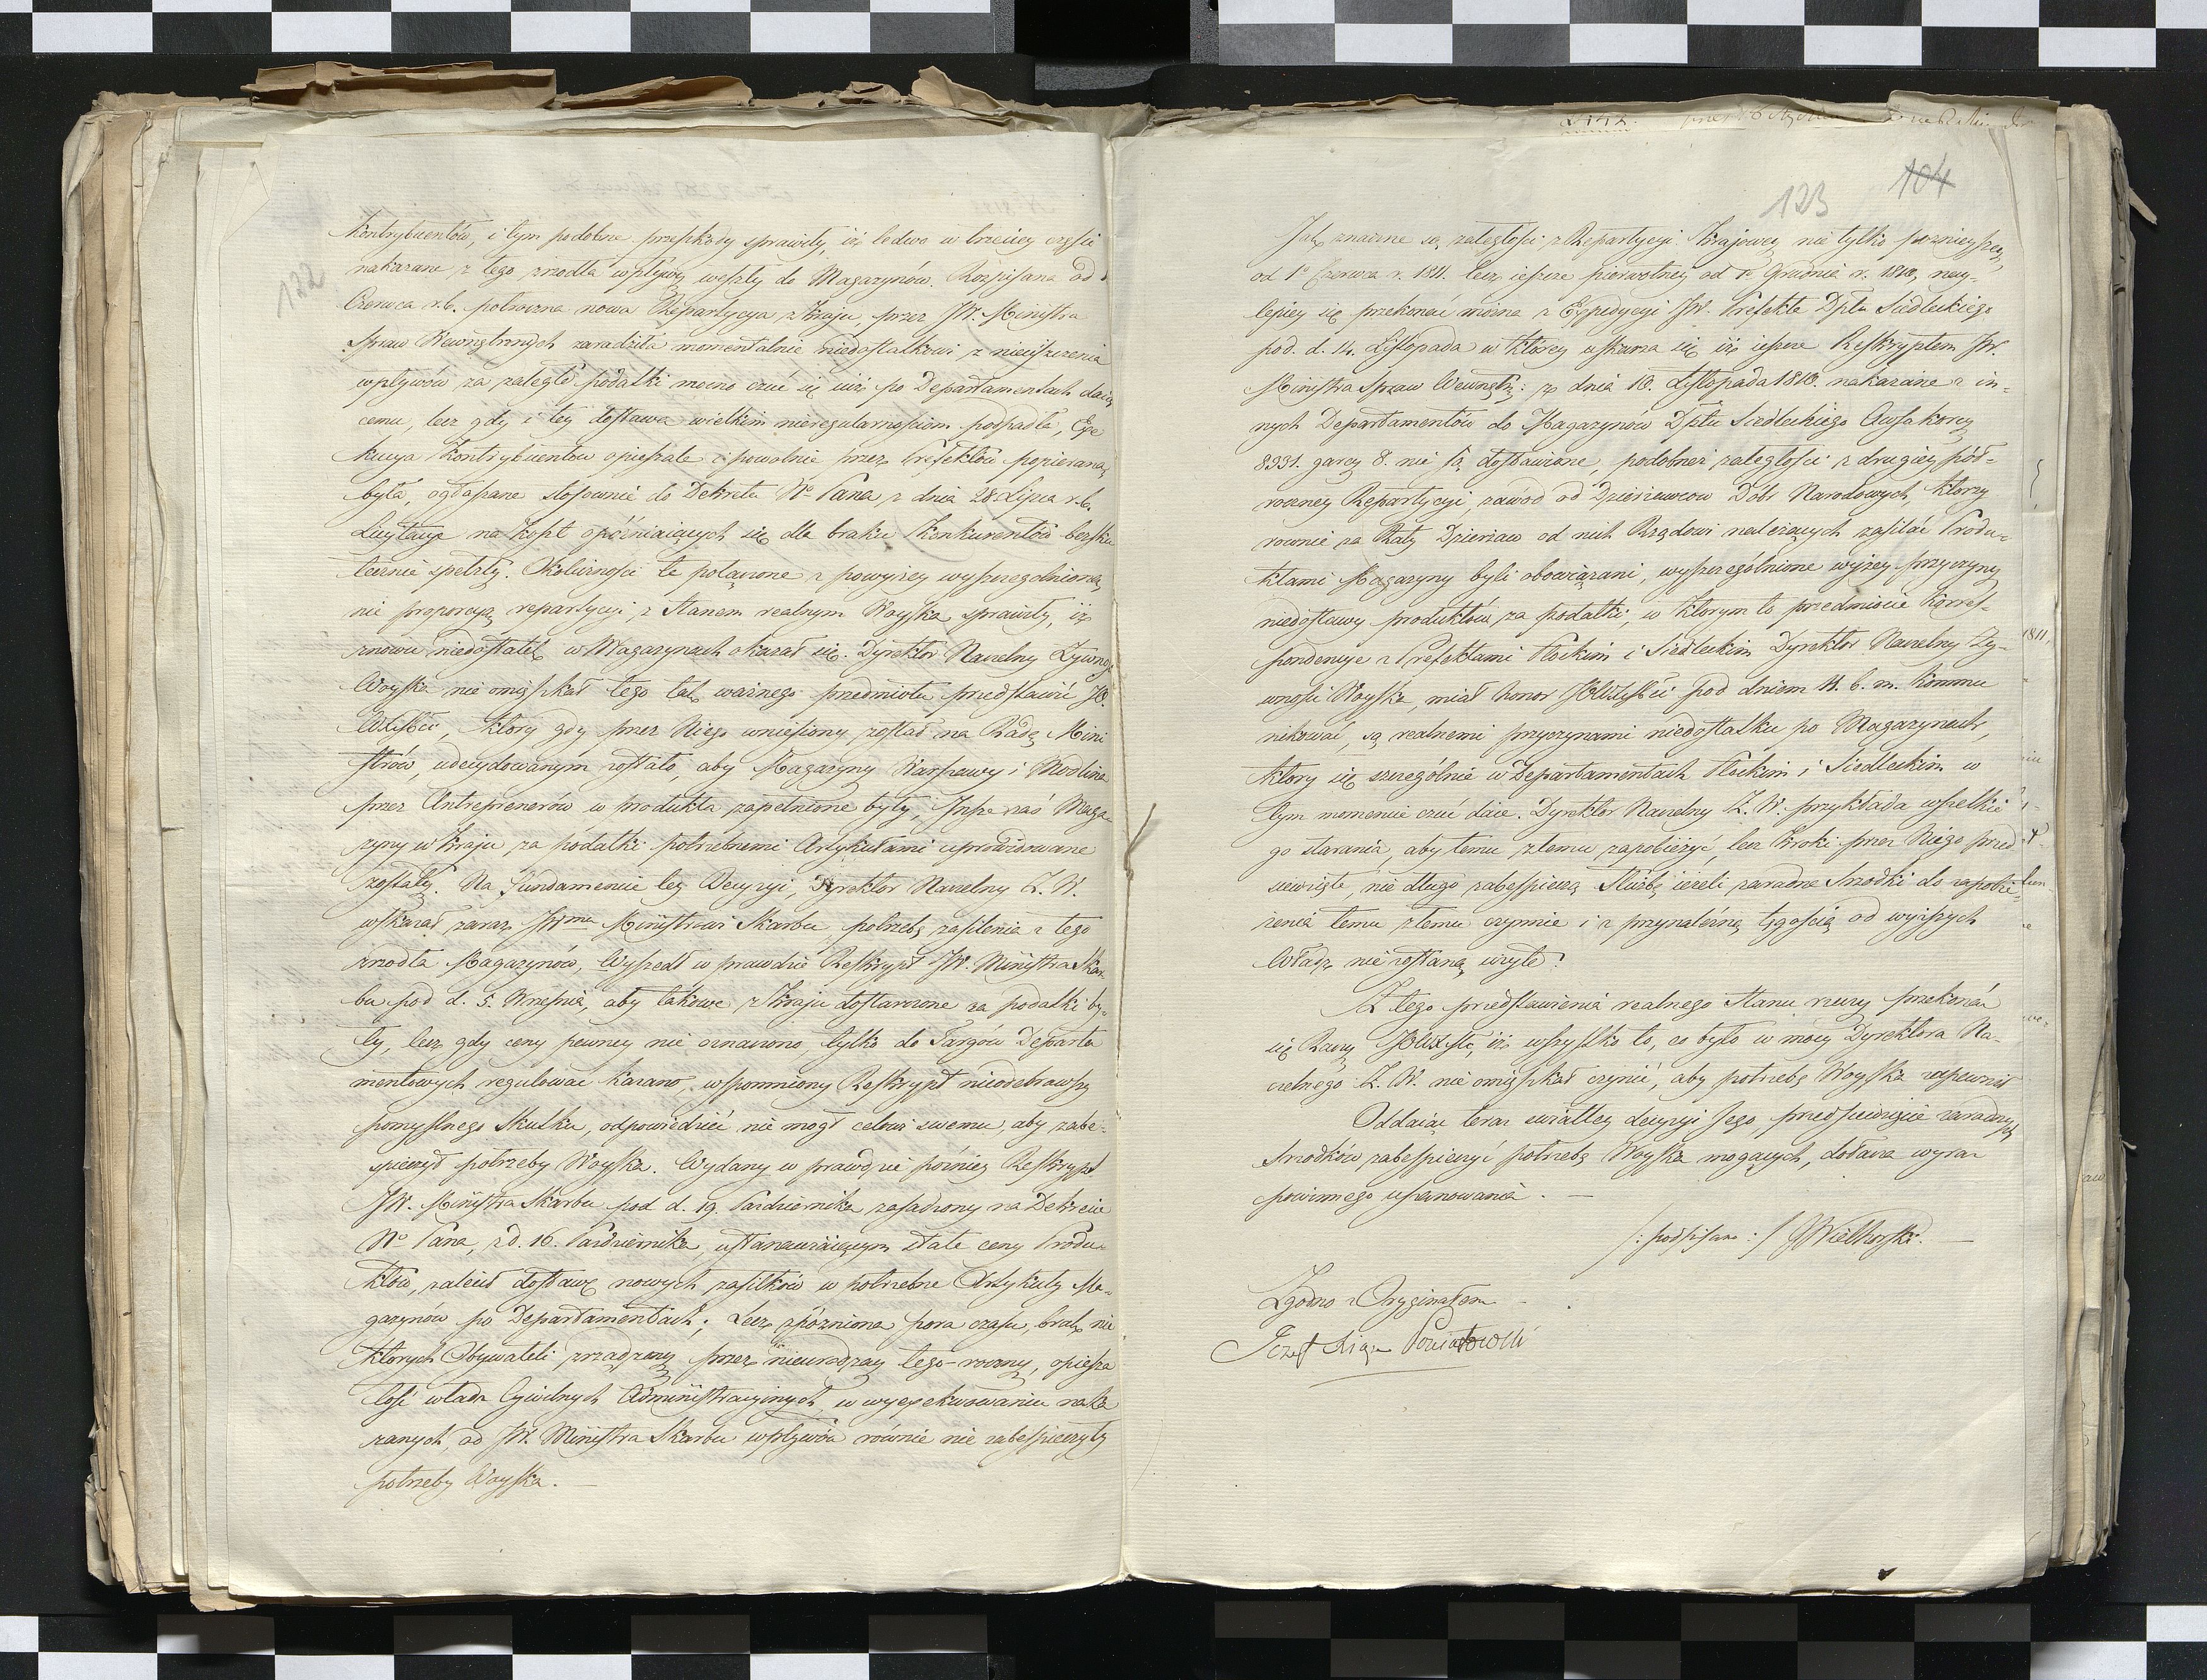 122
Kontrybuentów, i tym podobne przeszkody sprawiły, iż ledwo w trzeciey części
nakazane z tego zrzodła wpływy weszły do Magazynów. Rozpisana od 1
Czerwca r. b. półroczna nowa Repartycya z Kraju, przez JW. Ministra
Spraw Wewnętrznych zaradziła momentalnie niedostatkowi z nieiszczenia
wpływów za zaległe podatki mocno czuć się już po Departamentach daią
cemu, lecz gdy i tey dostawa wielkim nieregularnościom podpadła, Exe
kucya Kontrybuentów opieszale i powolnie przez Prefektów popierana
była, ogłaszane stosownie do Dekretu No Pana z dnia 28 Lipca r. b.
Licytacye na koszt opóźniaiących się dla braku Konkurentów bezsku
tecznie spełzły. Okoliczności te połączone z powyżey wyszczególnioną
nie proporcyą repartycyi z Stanem realnym Woyska sprawiły, iż
znowu niedostatek w Magazynach okazał się. Dyrektor Naczelny Żywnoś
Woyska nie omięszkał tego tak ważnego przedmiotu przedstawić JO.
WXcMści, który gdy przez Niego wniesiony został na Radę Mini
strów, udecydowanym zostało, aby Magazyny Warszawy i Modlina
przez Antreprenerów w produkta zapełnione były, Insze zaś Maga
zyny w Kraju za podatki potrzebnemi Artykułami uprowidowane
zostały. Na fundamencie tey Decyzyi, Dyrektor Naczelny Ż. W.
wskazał zaraz JWmu Ministrowi Skarbu potrzebę zasilenia z tego
zrzodła Magazynów, Wyszedł w prawdzie Reskrypt JW. Ministra Skar
bu pod d. 5. Września, aby takowe z Kraju dostarczone za podatki by-
ły, lecz gdy ceny pewney nie oznaczono, tylko do Targów Departa
mentowych regulować kazano, wspomniony Reskrypt nieodebrawszy
pomyślnego Skutku, odpowiedzieć nie mogł celowi swemu, aby zabe-
spieczył potrzeby Woyska. Wydany w prawdzie późniey Reskrypt
JW. Ministra Skarbu pod d. 19. Pazdziernika zasadzony na Dekrecie
No Pana, z d. 16. Pazdziernika, ustanawiaiącym stałe ceny Produ-
któw, zalecił dostawę nowych zasiłków w potrzebne Artykuły Ma-
gazynów po Departamentach; Lecz spóźniona pora czasu, brak nie
których Obywateli zrządzony przez nieurodzay tego-roczny, opiesza
łość władz Cywilnych Administracyinych w wyexekwowaniu naka
zanych od JW. Ministra Skarbu wpływów równie nie zabespieczyły
potrzeby Woyska. —
104
123
Jak znaczne są zaległości z Repartycyi Krajowey nie tylko poznieyszey
od 1o Czerwca r. 1811. lecz ieszcze pierwotney od Grudnia r. 1810, nay-
lepiey się przekonać można z Expedycyi JW. Prefekta Dptu Siedleckiego
pod. d. 14. Listopada w którey uskarża się iż ieszcze Reskryptem JW.
Ministra Spraw Wewnętrz: z dnia 10. Listopada 1810. nakazane z in-
nych Departamentów do Magazynów Dptu Siedleckiego Owsa korcy
8931. garcy 8. nie są dostawione, podobneż zaległości z drugiey pół-
roczney Repartycyi, zawód od Dzierzawców Dóbr Narodowych, którzy
rownie za Raty Dzierzaw od nich Rządowi należących zasilać Produ-
ktami Magazyny byli obowiązani, wyszczególnione wyżey przyczyny
niedostawy produktów za podatki, w którym to przedmiocie Korres-
pondencye z Prefektami Płockim i Siedleckim Dyrektor Naczelny Ży-
wności Woyska, miał honor pod dniem 11. b. m. Kommu
nikować, są realnemi przyczynami niedostatku po Magazynach,
który się szczególnie w Departamentach Płockim i Siedleckim w
tym momencie czuć daie. Dyrektor Naczelny Ż. W. przykłada wszelkie
go starania, aby temu złemu zapobieżyć, lecz Kroki przez Niego przed-
sięwzięte, nie długo zabespieczą Służbę ieżeli zaradne Srzodki do zapobie
żenia temu złemu czynnie i z przynależną tęgością od wyższych
Władz nie zostaną użyte.
Z tego przedstawienia realnego Stanu rzeczy przekonać
się Raczy iż wszystko to, co było w mocy Dyrektora Na-
czelnego Ż. W. nie omięszkał czynić, aby potrzebę Woyska zapewnił
Oddaiąc teraz swiatłey decyzyi Jego, przedsięwzięcie zaradczych
Srzodków zabespieczyć potrzebę Woyska mogących, dołącza wyraz
powinnego uszanowania. —
/: podpisano :/ Wielhorski. —
Zgodno z Oryginałem
Jozef Xiąże Poniatowski
1811,